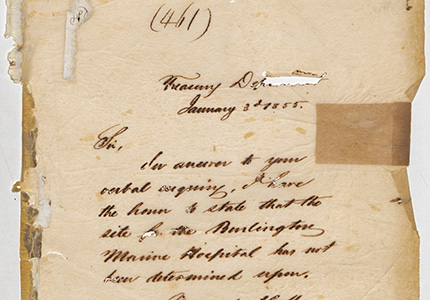 (461)
Treasury Department
January 3d 1855.
Sir,
In answer to your
verbal enquiry, I have
the honor to state that the
site for the Burlington
Marine Hospital has not
been determined upon.